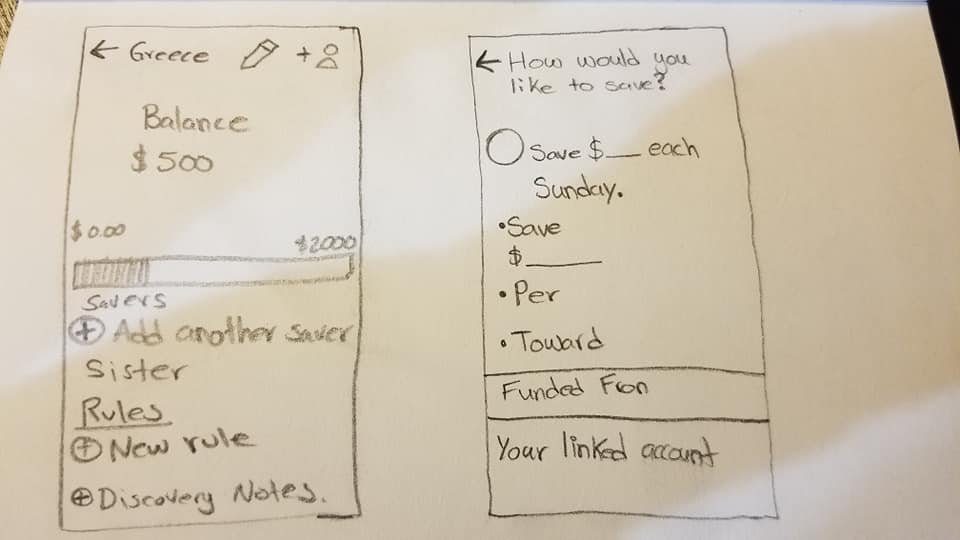 ← Greece +
Balance
$500
$0.00
$2000
Savers
+ Add another saver
Sister
Rules
+ New rule
+ Discovery Notes.
← How would you
like to save?
Save $__ each
Sunday.
• Save
$____
• Per
• Toward
Funded Fron
Your linked account